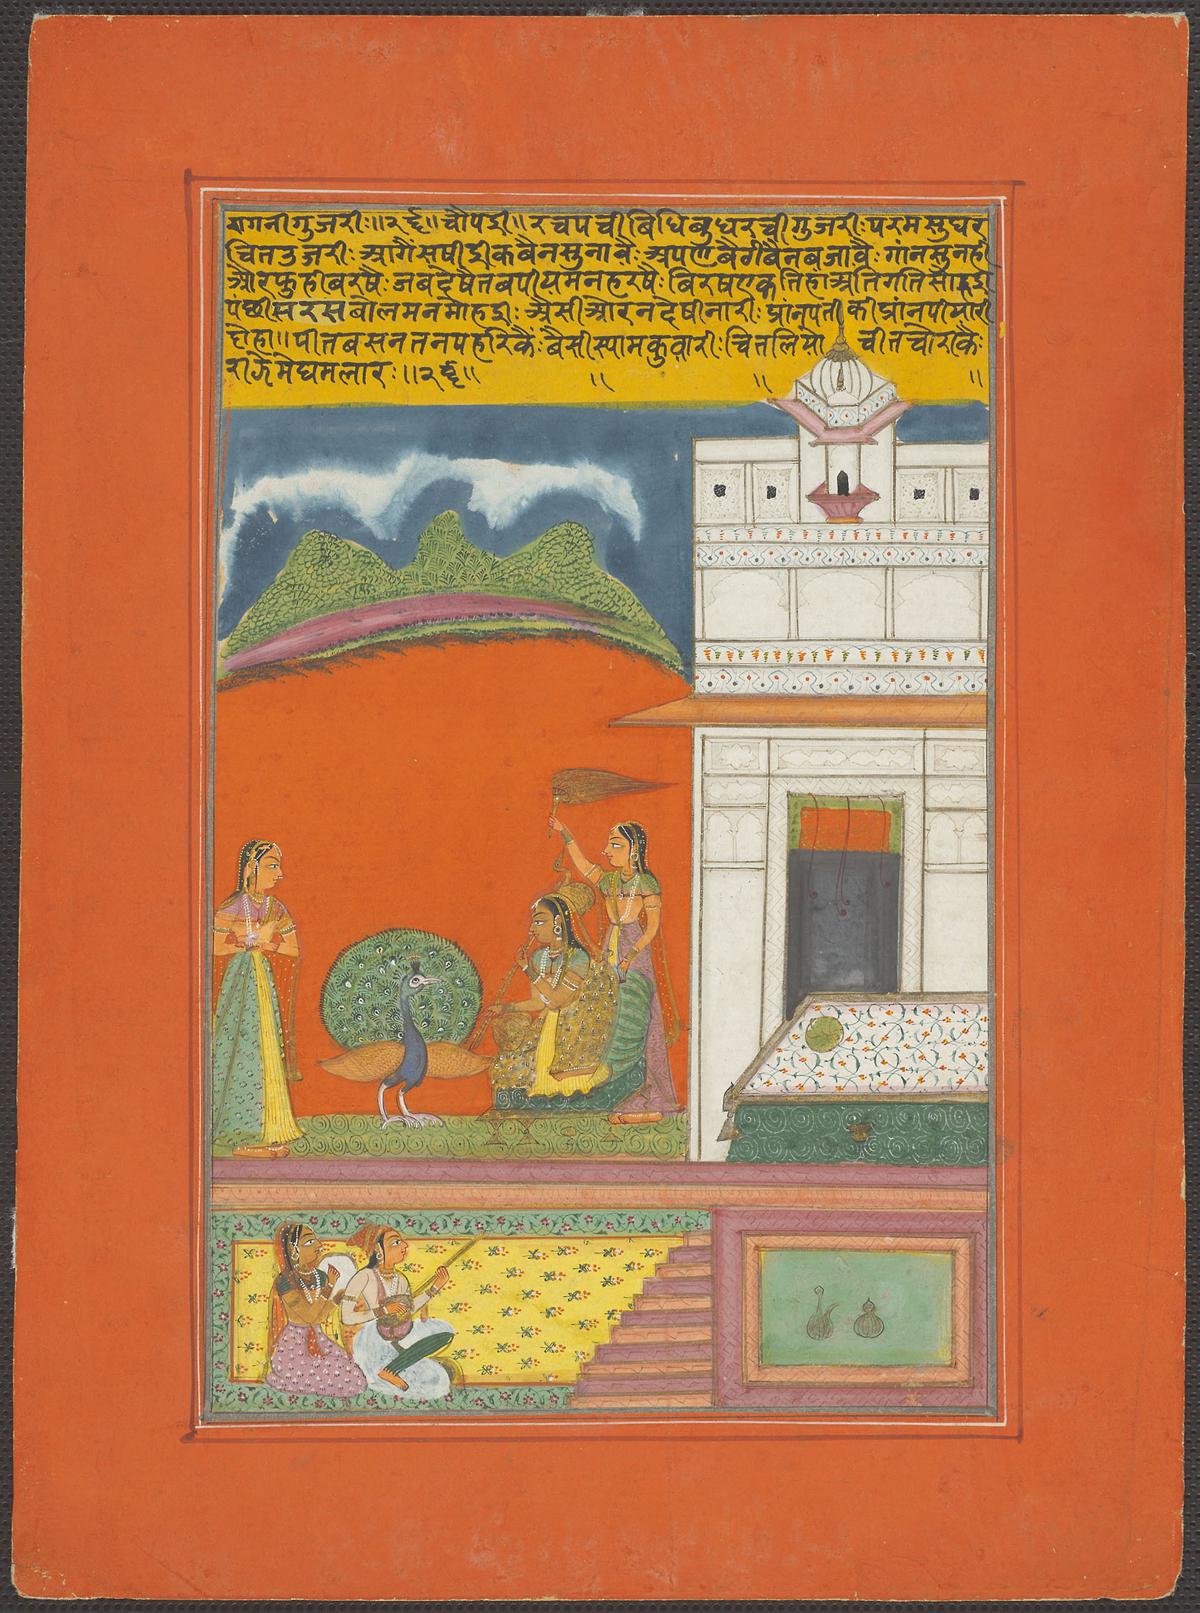 रागनी गुजरी:॥२६॥ चौपई॥ रच पची बिधि बुध रची गुजरी: परम सुघर
चित उजरी: आगैं सषी इक बैन सुनावै: अपणै बैनबजावै: गांन सुनही
और फुही बरषै: जब देषै तब पीय मन हरषै: बिरष एक तिहां अति गति
पछी सरस बोल मन मोहई: अैसी और न देषी नारी: प्रांनपती की प्रांन पीयारी
दोहा॥ पीत बसन तन पहरिकैं: बैसी स्याम कुवारी: चित लियो चीत चोर कै:
मेघमलार:॥२६॥